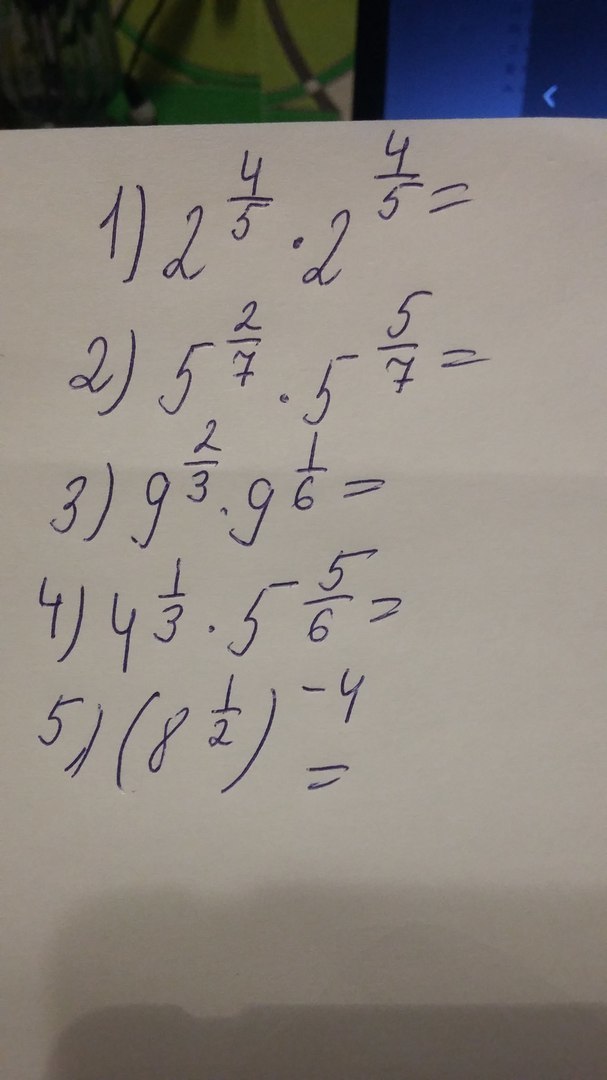 1) 2^{4/5} · 2^{4/5} =
2) 5^{2/7} · 5^{5/7} =
3) 9^{2/3} · 9^{1/6} =
4) 4^{1/3} · 5^{5/6} =
5) (8^{1/2})^{-4} =